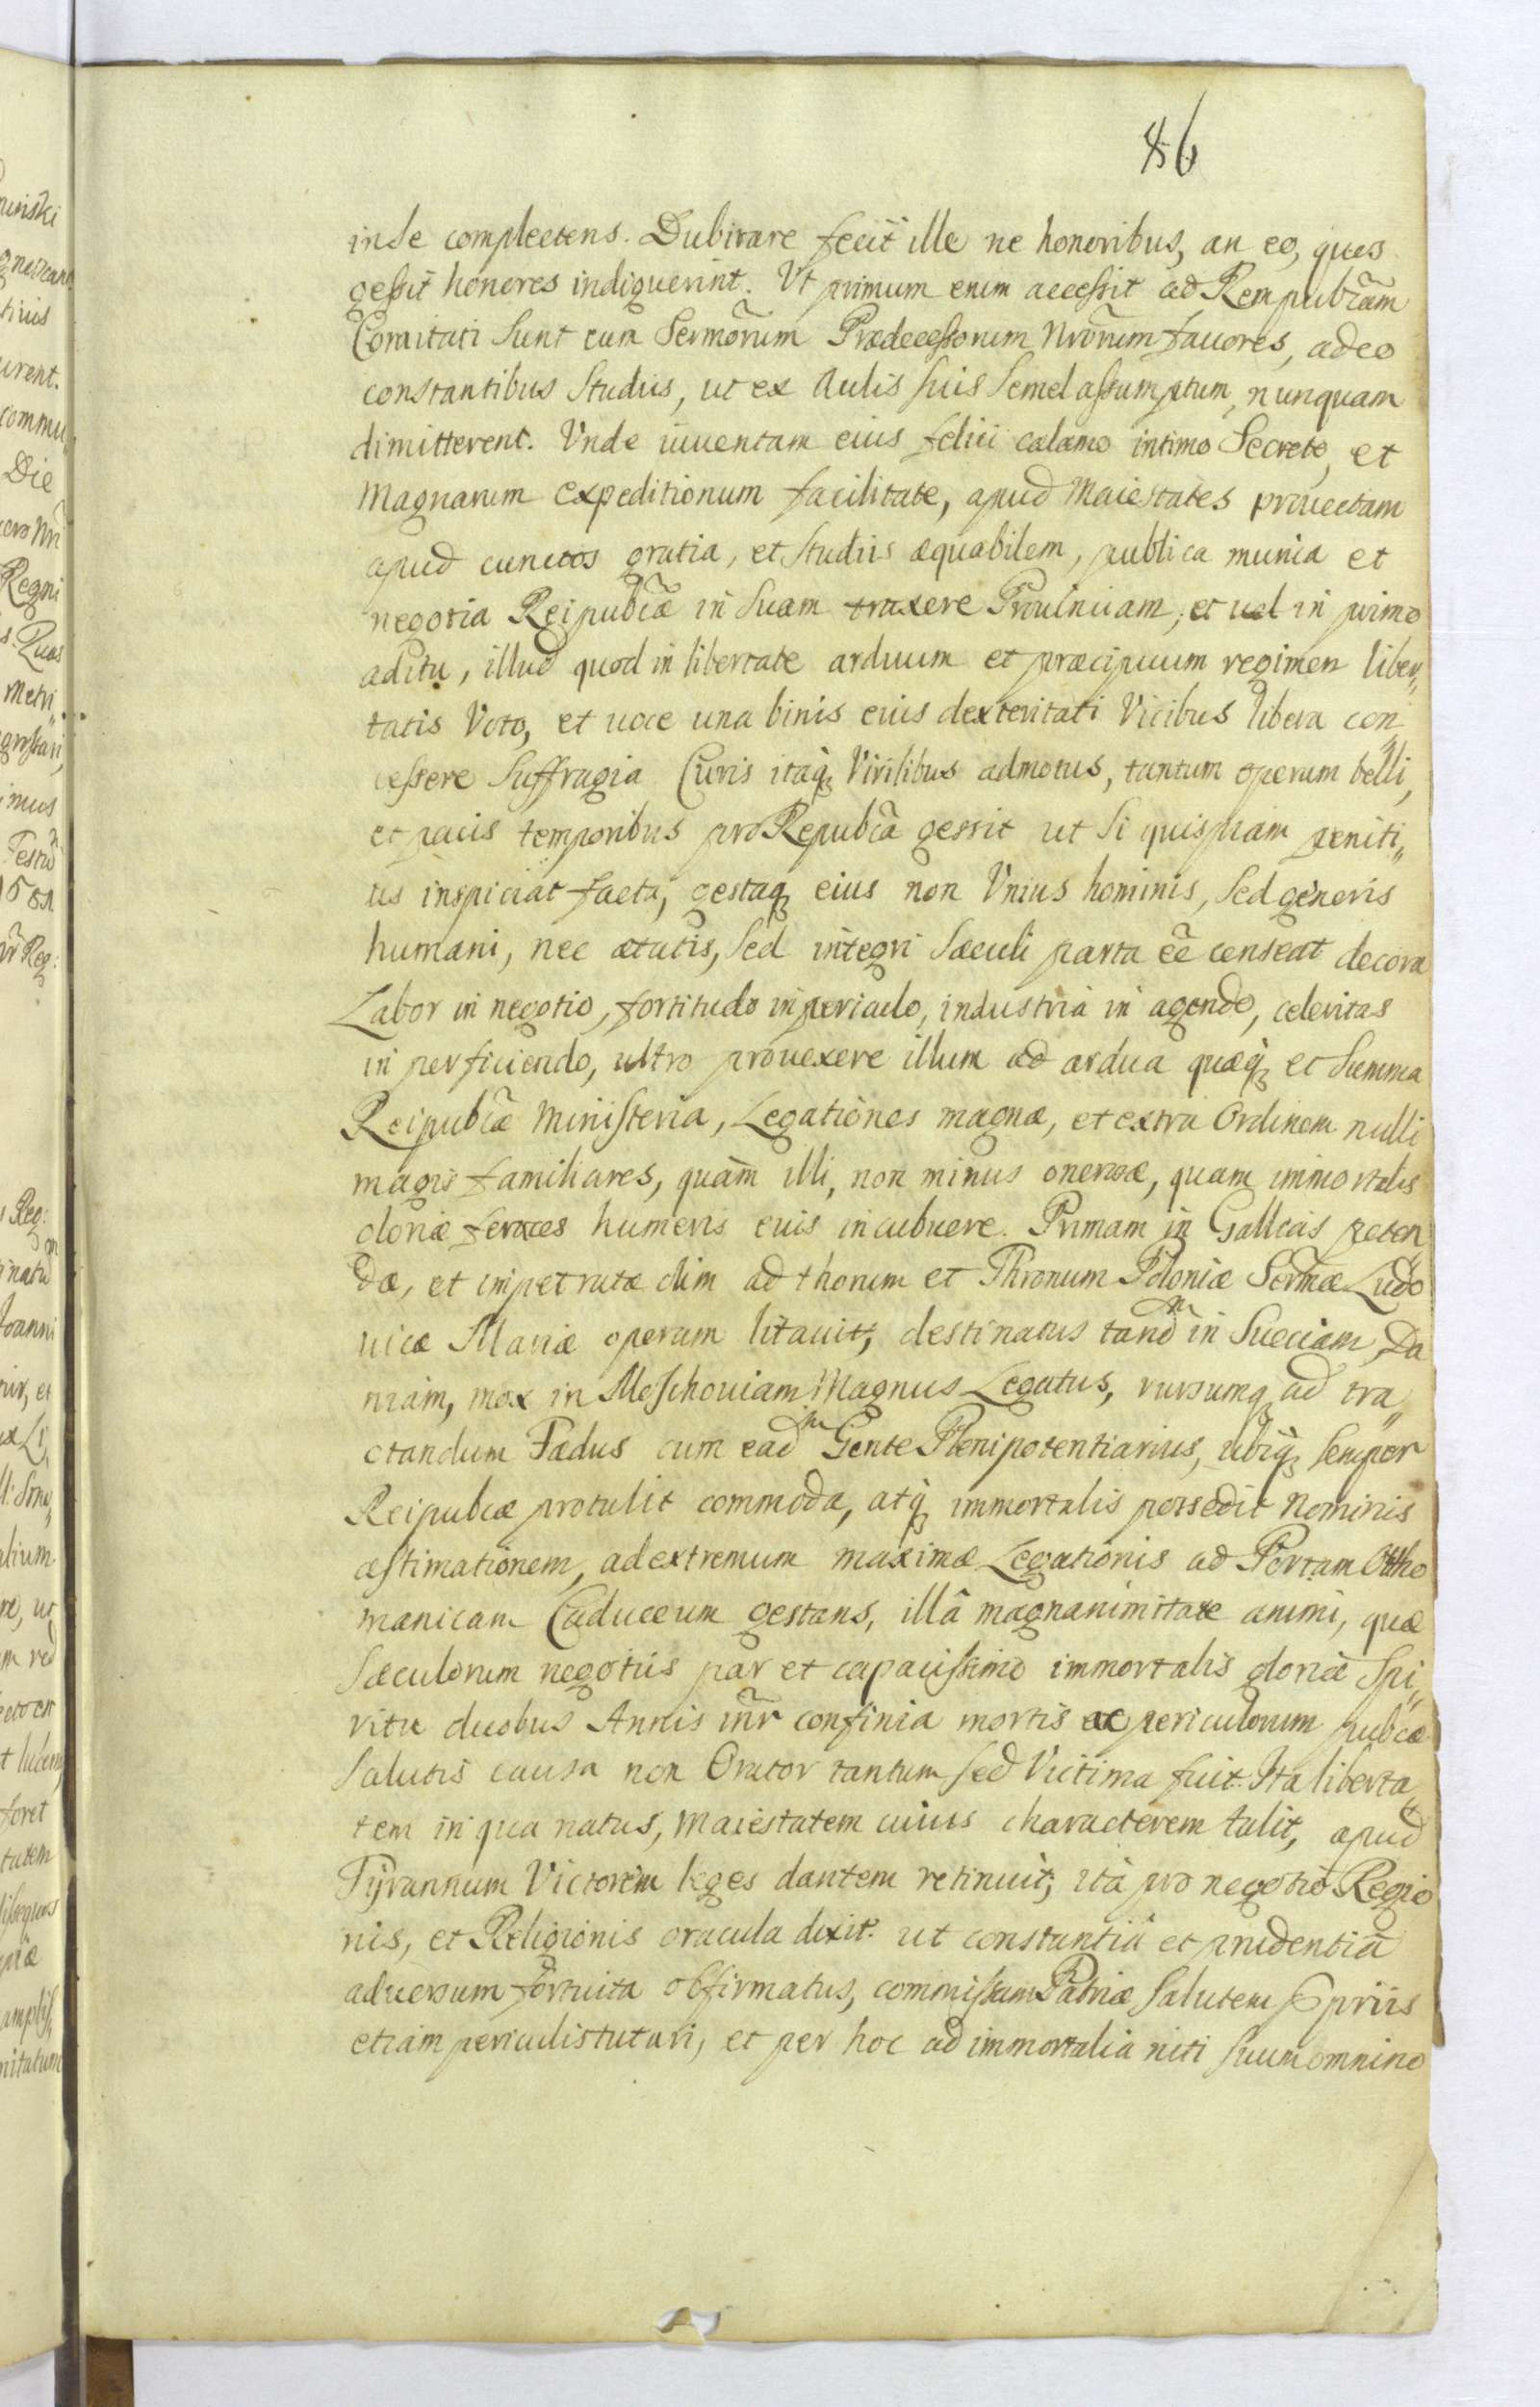 86
inde complectens. Dubitare fecit ille ne honoribus, an eo, quos
gessit honores indiguerint. Vt primum enim accessit ad Rempubcãm
Comitati sunt eum Sermõrum Prædecessorum Nrõrum fauores, adeo
constantibus Studiis, ut ex Aulis suis semel assumptum, nunquam
dimitterent. Vnde iuuentam eius felici calamo intimo Secreto, et
Magnarum expeditionum facilitate, apud Maiestates prouectam
apud cunctos gratia, et studiis æquabilem, publica munia et
negotia Reipubcæ̃ in suam traxere Prouinciam, et uel in primo
aditu, illud quod in libertate arduum et præcipuum regimen liber„
tatis Voto, et uoce una binis eius dexteritati Vicibus libera con„
cessere Suffragia Curis itaq; Virilibus admotus, tantum operum belli,
et pacis temporibus pro Repubcã gessit ut si quispiam peniti„
us inspiciat facta, gestaq; eius non Vnius hominis, sed generis
humani, nec ætatis, sed integri sæculi parta eẽ censeat decora
Labor in negotio, fortitudo in periculo, industria in agendo, celeritas
in perficiendo, ultro prouexere illum ad ardua quæq; et summa
Reipubcæ̃ Ministeria, Legationes magnæ, et extra Ordinem nulli
magis familiares, quàm illi, non minus onerosæ, quam immortalis
gloriæ feraces humeris eius incubuere. Primam in Galleis peten„
dæ, et impetratæ olim ad thorum et Thronum Poloniæ Serm̃æ Ludo
uicæ Mariæ operam litauit, destinatus tandm in Sueciam, Da
niam, mox in Moschouiam Magnus Legatus, rursumq; ad tra„
ctandum Fædus cum eadm Gente Plenipotentiarius, ubiq; semper
Reipubcæ protulit commoda, atq; immortalis possedit Nominis
æstimationem, ad extremum maximæ Legationis ad Portam Ottho
manicam Caduceum gestans, illâ magnanimitate animi, quæ
sæculorum negotiis par et capacissimo immortalis gloriæ Spi„
ritu duobus Annis inr̃ confinia mortis ac periculorum pubcæ
salutis causa non Orator tantum sed Victima fuit. Ita liberta„
tem in qua natus, Maiestatem cuius characterem tulit, apud
Tyrannum Victorem leges dantem retinuit, ita pro negotio Regio
nis, et Religionis oracula dixit. ut constantiâ et prudentiâ
aduersum fortuita obfirmatus, commissam Patriæ salutem ppriis
etiam periculis tutari, et per hoc ad immortalia niti suum omnino